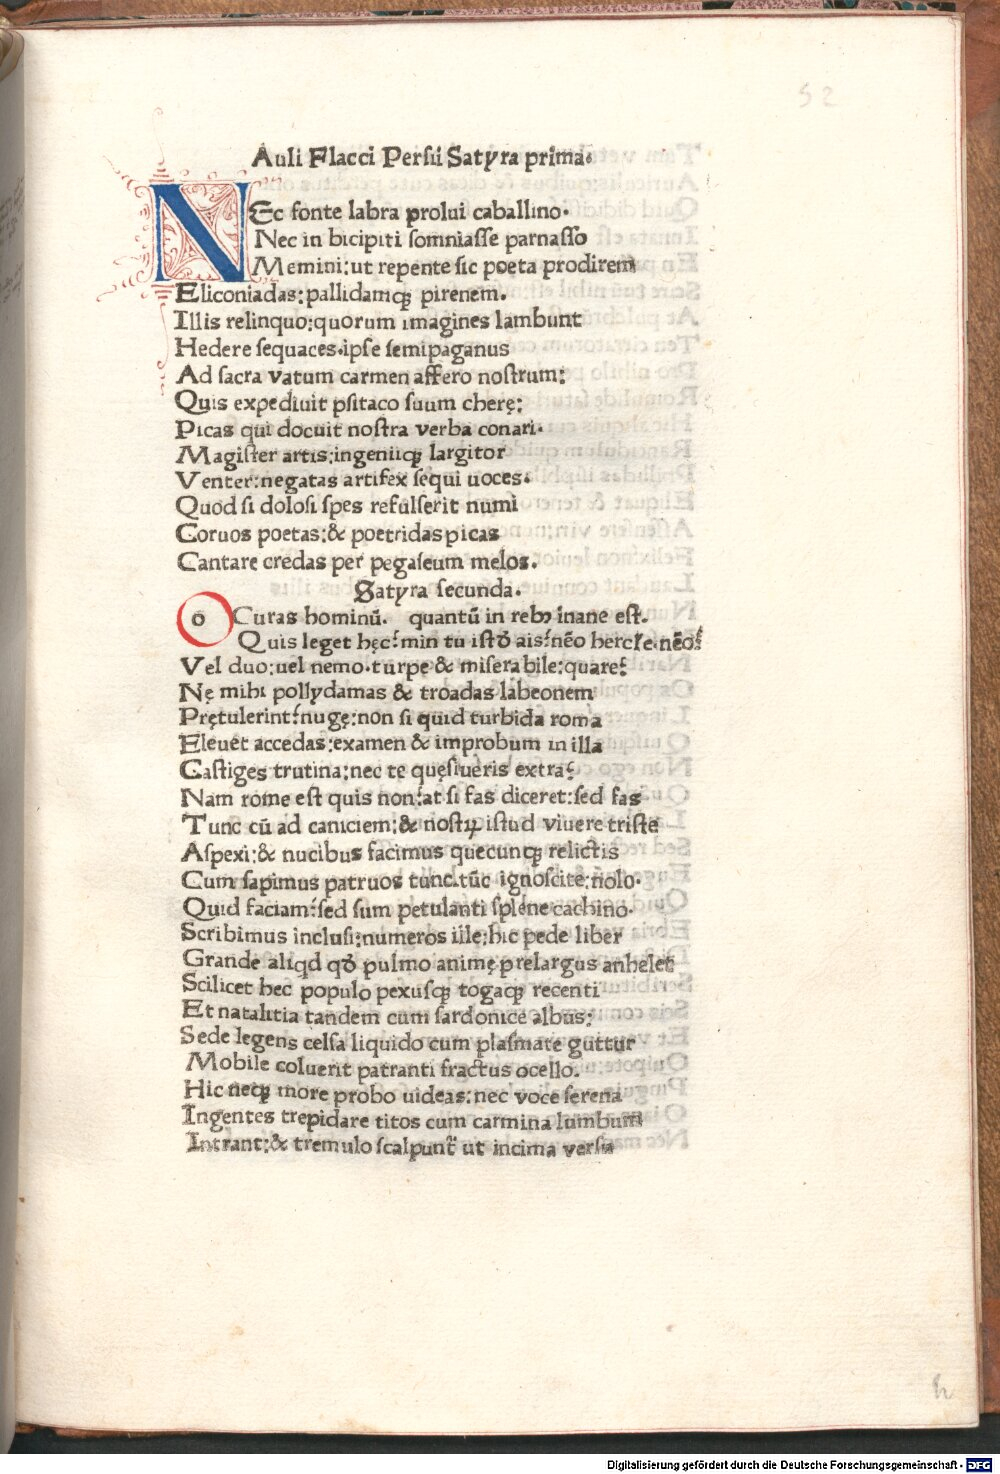 52
Auli Flacci Persii Satyra prima.
NEc fonte labra prolui caballino.
Nec in bicipiti somniasse parnasso
Memini: ut repente sic poeta prodirem
Eliconiadas: pallidamqꝫ pirenem.
Illis relinquo: quorum imagines lambunt
Hedere sequaces. ipse semipaganus
Ad sacra vatum carmen affero nostrum:
Quis expediuit psitaco suum cherę:
Picas qui docuit nostra verba conari.
Magister artis: ingeniiqꝫ largitor
Venter: negatas artifex sequi uoces.
Quod si dolosi spes refulserit numi
Coruos poetas: & poetridas picas
Cantare credas per pegaseum melos.
Satyra secunda.
O Curas hominū. quantū in rebꝫ inane est.
Quis leget hęc? min tu istd̄ ais? nēo hercle. nēo?
Vel duo: uel nemo. turpe & miserabile: quare?
Nę mihi pollydamas & troadas labeonem
Prętulerint? nugę: non si quid turbida roma
Eleuet accedas: examen & improbum in illa
Castiges trutina: nec te quęsiueris extra?
Nam rome est quis non? at si fas diceret: sed fas
Tunc cū ad caniciem: & nostꝝ istud viuere triste
Aspexi: & nucibus facimus quecunqꝫ relictis
Cum sapimus patruos tunc. tūc ignoscite: nolo.
Quid faciam? sed sum petulanti splene cachino.
Scribimus inclusi: numeros ille; hic pede liber
Grande aliqd qd̄ pulmo animę prelargus anhelet
Scilicet hec populo pexusqꝫ togaqꝫ recenti
Et natalitia tandem cum sardonice albus:
Sede legens celsa liquido cum plasmate guttur
Mobile coluerit patranti fractus ocello.
Hic neqꝫ more probo uideas: nec voce serena
Ingentes trepidare titos cum carmina lumbum
Intrant: & tremulo scalpunt̄ ut incima versu
h
Digitalisierung gefördert durch die Deutsche Forschungsgemeinschaft - DFG